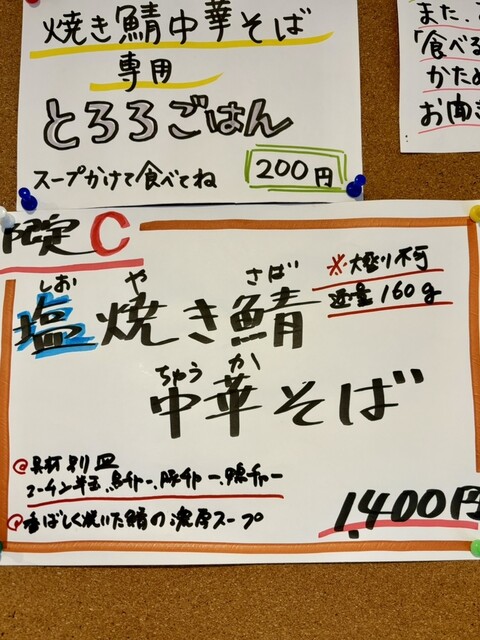 焼き鯖中華そば
専用
とろろごはん
スープかけて食べてね
200円
また、
「食べる
かため
お聞き
限定C
※大盛り不可
麺量160g
しお や さば
塩焼き鯖
ちゅう か
中華そば
◎具材別皿
コーチン半玉、鶏チャー、豚チャー、鴨チャー
◎香ばしく焼いた鯖の濃厚スープ
1,400円